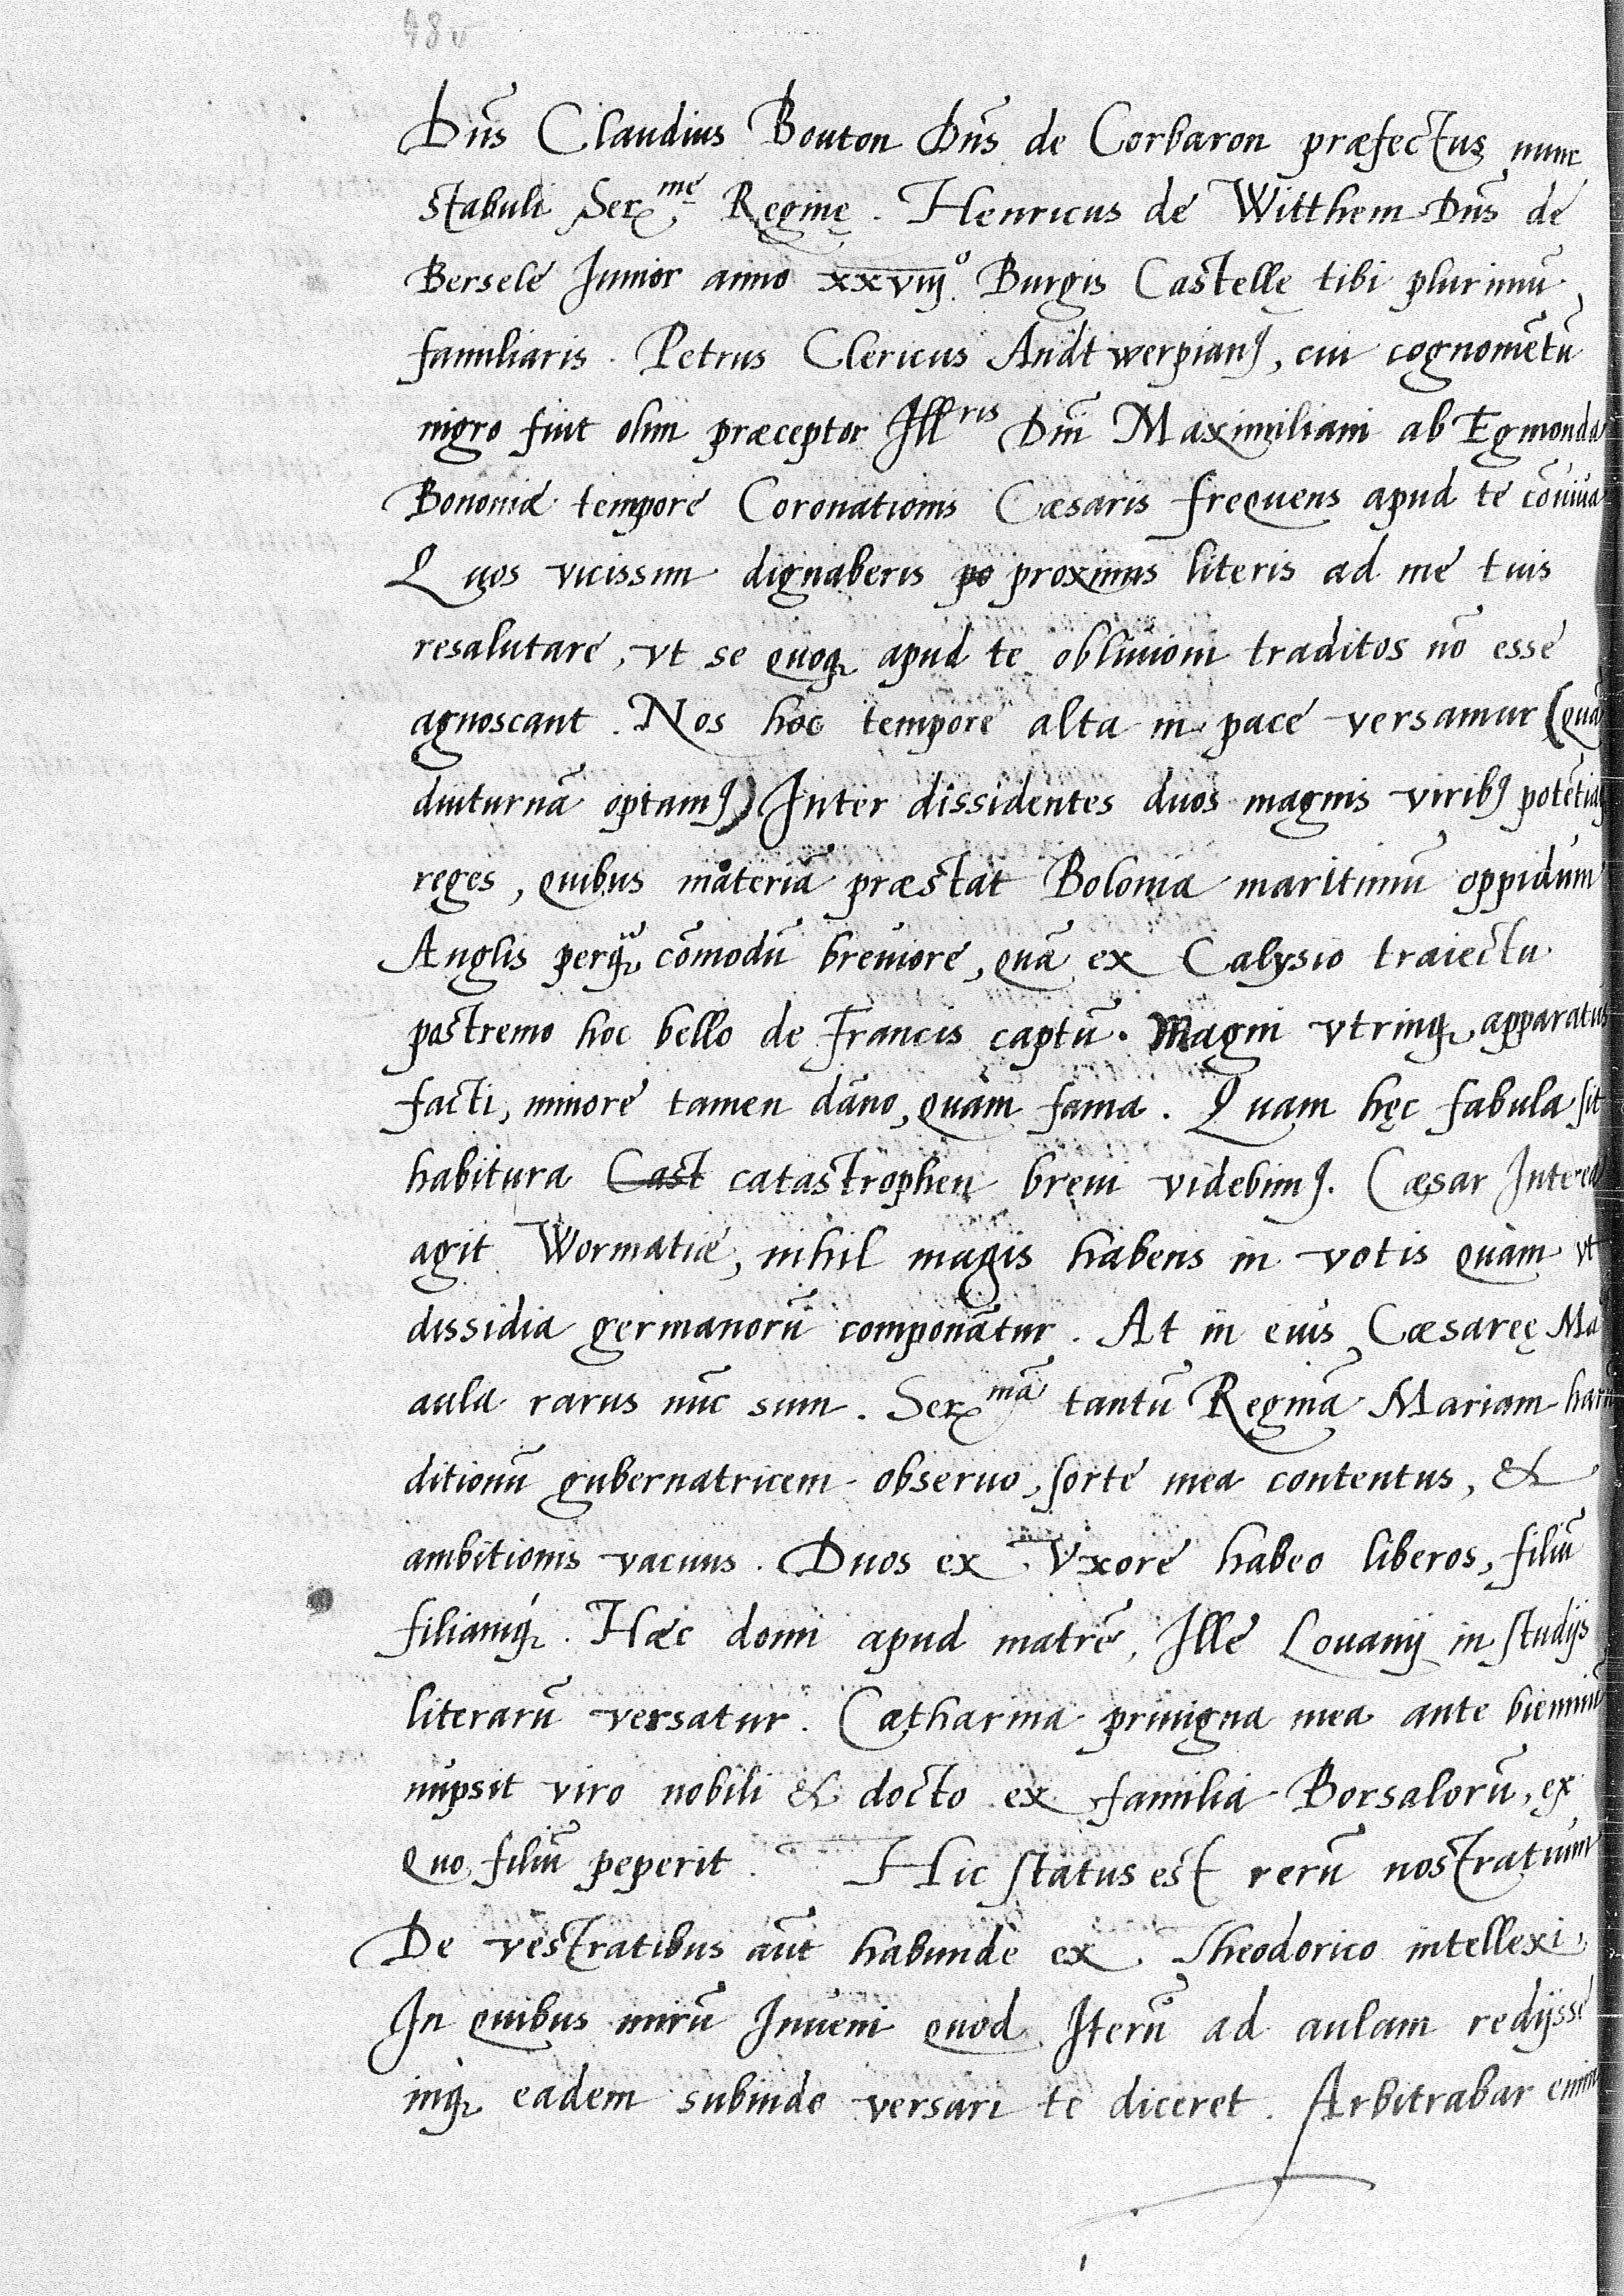 480
Dn̄s Claudius Bouton Dn̄s de Corbaron præfectus nunc
stabuli Ser.me Reginę. Henricus de Witthem Dn̄s de
Bersele Junior anno xxviij.o Burgis Castellę tibi plurimū
familiaris. Petrus Clericus Andtwerpianꝰ, cui cognomētū
nigro fuit olim præceptor Illris Dn̄i Maximiliani ab Egmonda
Bononiæ tempore Coronationis Cæsaris frequens apud te cōuiua
Quos vicissim dignaberis po proximis literis ad me tuis
resalutare, vt se quoqꝫ apud te obliuioni traditos nō esse
agnoscant. Nos hoc tempore alta in pace versamur (quā
diuturnā optamꝰ) Inter dissidentes duos magnis viribꝰ
reges, quibus materiā præstat Bolonia maritimū oppidum
Anglis perqꝫ cōmodū breuiore, quā ex Calysio traiectu
postremo hoc bello de Francis captū. Magni vtrinqꝫ apparatus
facti, minore tamen dāno, quàm fama. Quam hęc fabula sit
habitura Cast catastrophen breui videbimꝰ. Cæsar Interea
agit Wormatiæ, nihil magis habens in votis quàm vt
dissidia germanorū componātur. At in eius Cæsareę Ma
aula rarus nūc sum. Ser.mā tantū Reginā Mariam harū
ditionū gubernatricem obseruo, sorte mea contentus, &
ambitionis vacuus. Duos ex Vxore habeo liberos, filiū
filiamqꝫ. Hæc domi apud matrē, Ille Louanij in studijs
literarū versatur. Catharina priuigna mea ante bienniū
nupsit viro nobili & docto ex familia Borsalorū, ex
quo filiū peperit. Hic status est rerū nostratium
De vestratibus aūt habunde ex Theodorico intellexi,
In quibus mirū Inueni quod Iterū ad aulam redijsse
inqꝫ eadem subinde versari te diceret. Arbitrabar enim